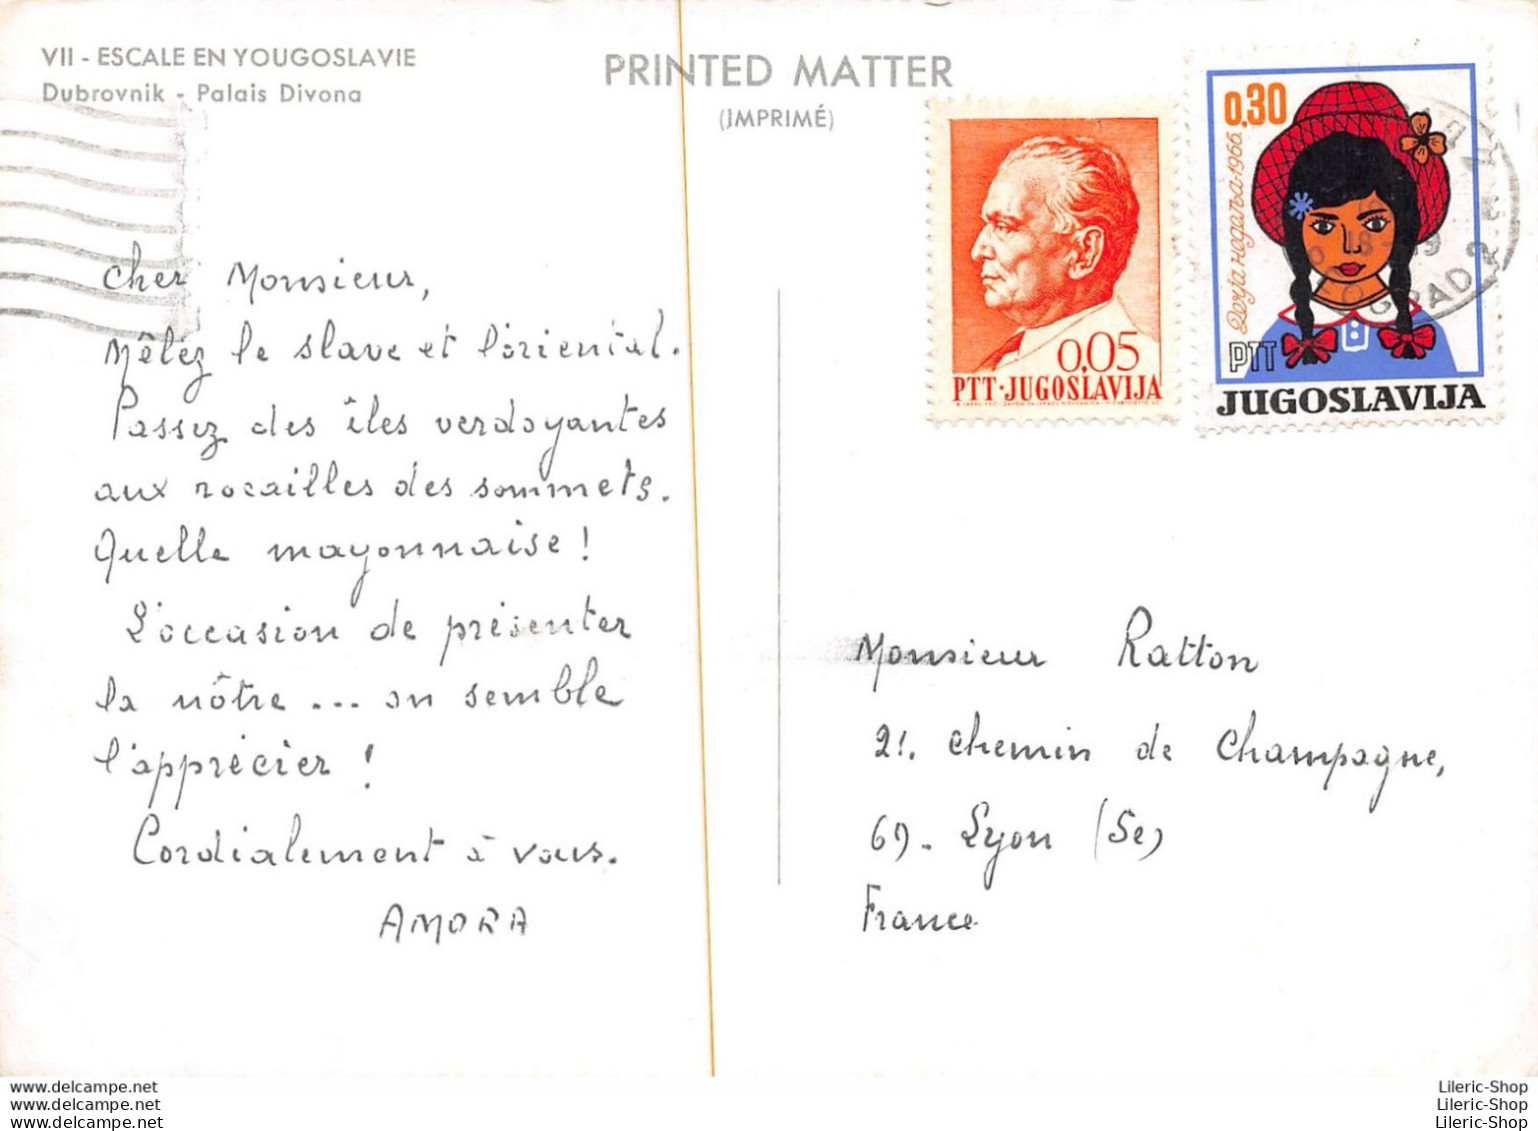 VII - ESCALE EN YOUGOSLAVIE
Dubrovnik - Palais Divona
PRINTED MATTER
(IMPRIMÉ)
0,05
PTT·JUGOSLAVIJA
0,30
1966
PTT
JUGOSLAVIJA
Cher Monsieur,
Mêlez le slave et l'oriental.
Passez des îles verdoyantes
aux rocailles des sommets.
Quelle mayonnaise !
L'occasion de présenter
la nôtre ... on semble
l'apprécier !
Cordialement à vous.
AMORA
Monsieur Ratton
21. chemin de Champagne,
69. Lyon (5e)
France
delcampe.net
www.delcampe.net
www.delcampe.net
Lileric-Shop
Lileric-Shop
Lileric-Shop